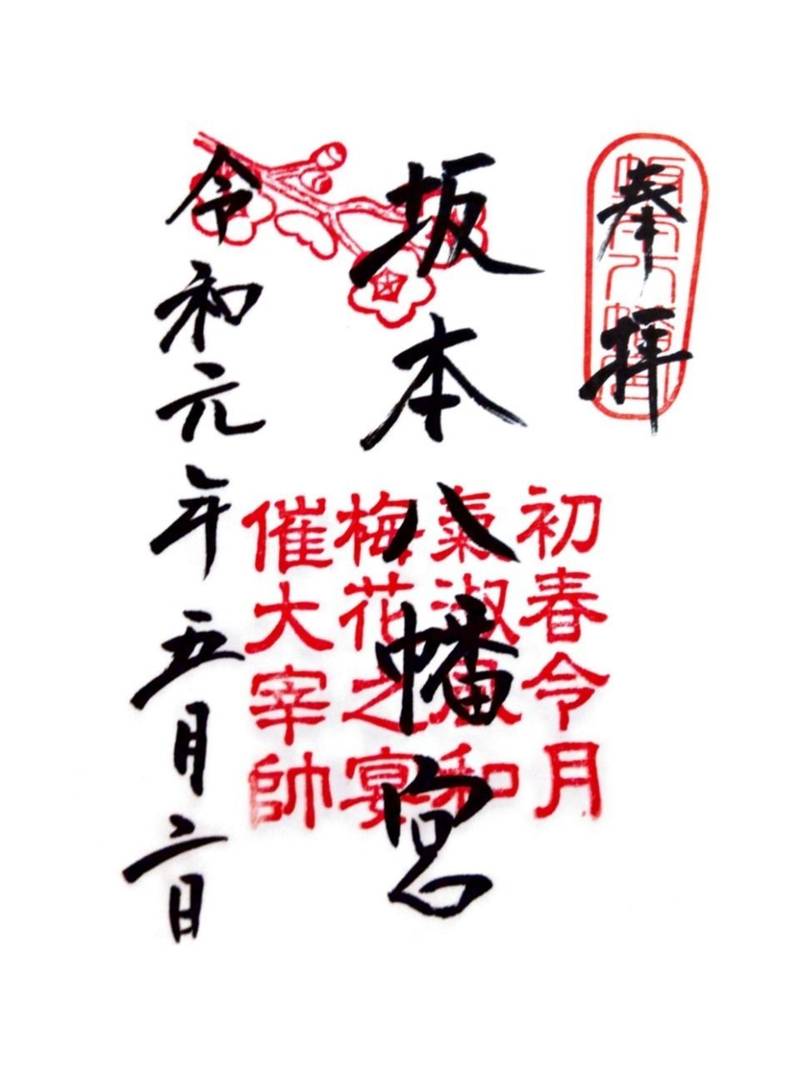 奉拝
坂本八幡宮
初春令月
氣淑風和
梅花之宴
催大宰帥
坂本八幡宮
令和元年五月二日